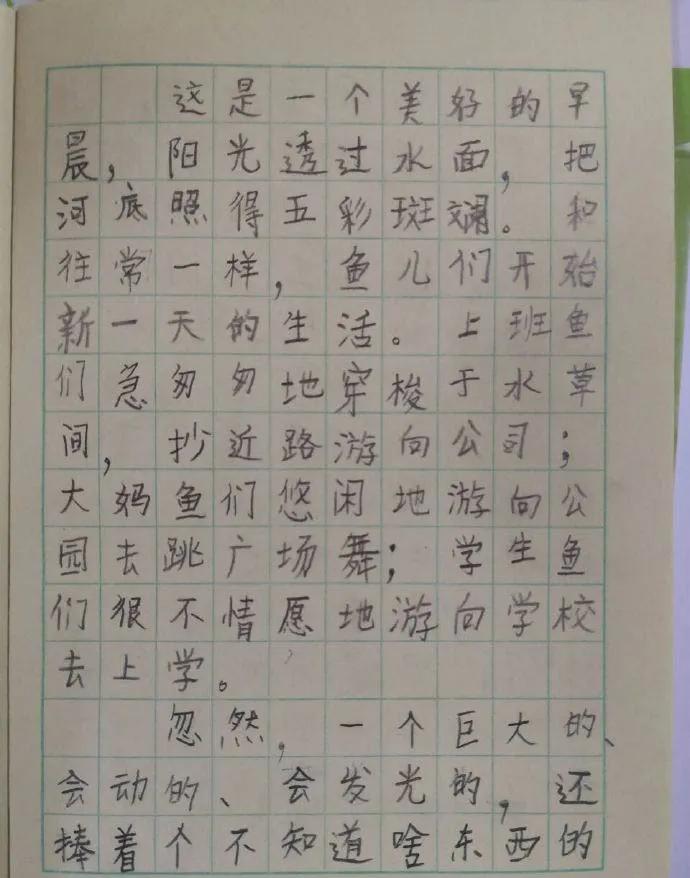 这是一个美好的早
晨，阳光透过水面，把
河底照得五彩斑斓。和
往常一样，鱼儿们开始
新一天的生活。上班鱼
们急匆匆地穿梭于水草
间，抄近路游向公司；
大妈鱼们悠闲地游向公
园去跳广场舞；学生鱼
们狠不情愿地游向学校
去上学。
忽然，一个巨大的、
会动的、会发光的，还
捧着个不知道啥东西的